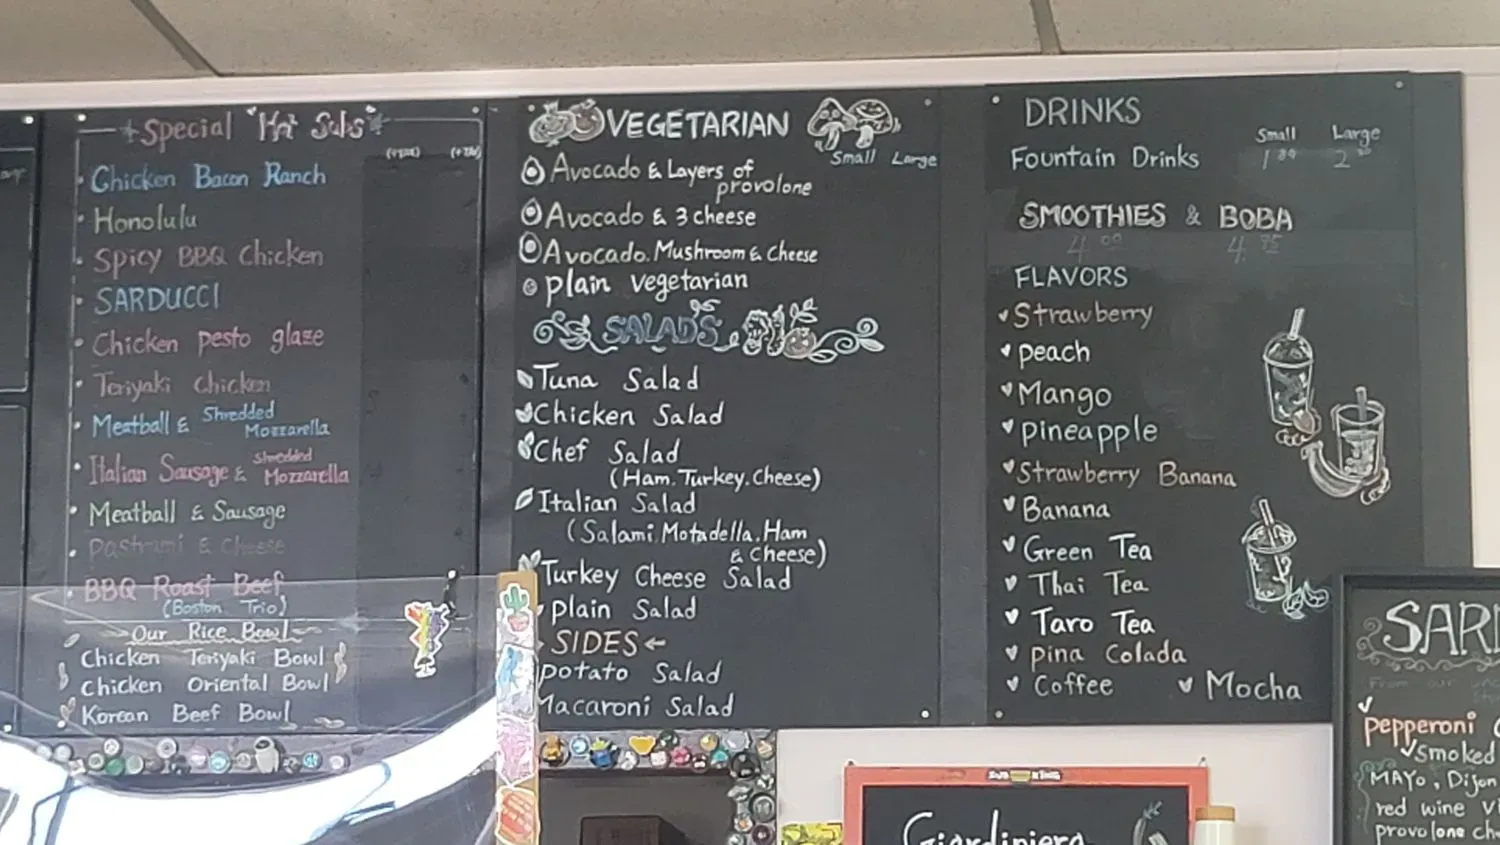 Special "Hot Subs"
(+TAX) (+TAX)
Chicken Bacon Ranch
Honolulu
Spicy BBQ Chicken
SARDUCCI
Chicken pesto glaze
Teriyaki Chicken
Meatball & Shredded
Mozzarella
Italian Sausage & Shredded
Mozzarella
Meatball & Sausage
Pastrami & Cheese
BBQ Roast Beef
(Boston Trio)
Our Rice Bowl
Chicken Teriyaki Bowl
Chicken Oriental Bowl
Korean Beef Bowl
VEGETARIAN
Small Large
Avocado & Layers of
provolone
Avocado & 3 cheese
Avocado. Mushroom & Cheese
plain vegetarian
SALADS
Tuna Salad
Chicken Salad
Chef Salad
(Ham. Turkey. Cheese)
Italian Salad
(Salami. Motadella. Ham
& Cheese)
Turkey Cheese Salad
plain Salad
SIDES
potato Salad
Macaroni Salad
DRINKS
Small Large
Fountain Drinks 1 89 2
SMOOTHIES & BOBA
4 00 4
FLAVORS
Strawberry
peach
Mango
pineapple
Strawberry Banana
Banana
Green Tea
Thai Tea
Taro Tea
pina Colada
Coffee
Mocha
Giardiniera
SAR
From our
pepperoni
Smoked
MAYO, Dijon
red wine vi
provolone che